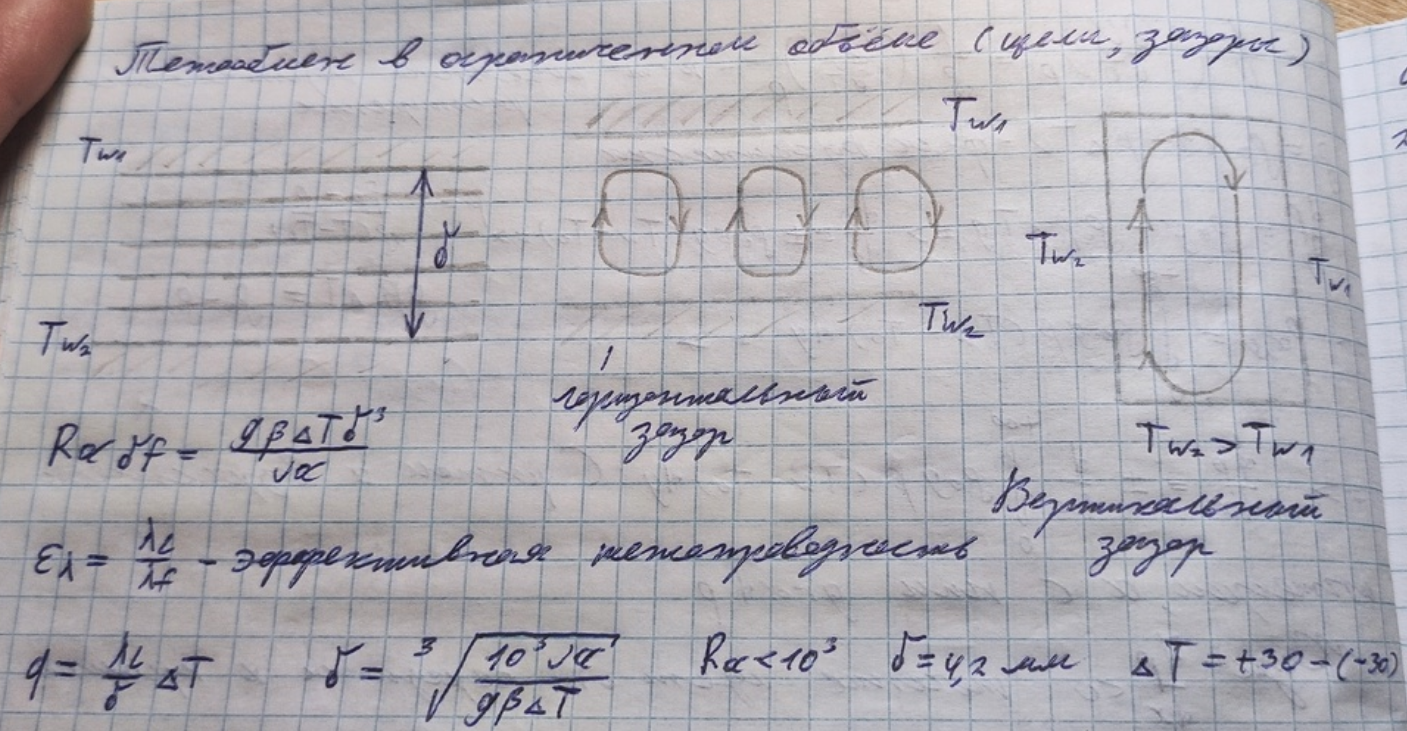 Теплообмен в ограниченном объёме (щели, зазоры)
Tw₁
δ
Tw₂
Tw₁
Tw₂
Горизонтальный
зазор
Tw₂
Tw₁
Tw₂ > Tw₁
Вертикальный
зазор
Ra δf = gβΔTδ³ / νa
ελ = λ / λf - эффективная теплопроводность
q = λ / δ ΔT δ = ³√(10³νa / gβΔT) Ra < 10³ δ = 4,2 мм ΔT = +30 - (-30)